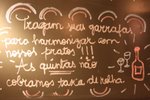 Tragam suas garrafas
para harmonizar com
nossos pratos!!!
"As quintas não
cobramos taxa de rolha